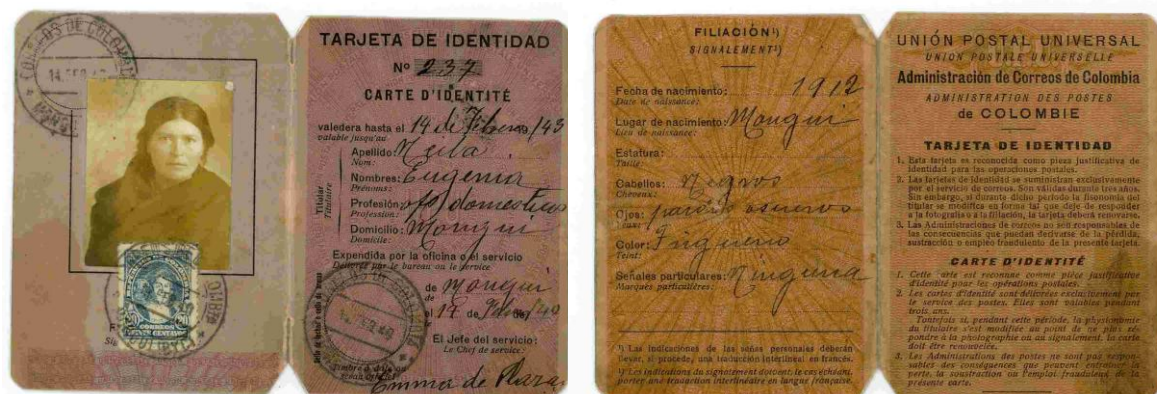 CORREOS DE COLOMBIA
14 FEB
CORREOS
TARJETA DE IDENTIDAD
Nº 237
CARTE D'IDENTITÉ
valedera hasta el 14 de Febrero/43
valable jusqu'au
Titulaire
Titular
Apellido: Neila
Nom:
Nombres: Eugenia
Prénoms:
Profesión: ofs/ domesticos
Profession:
Domicilio: Mongui
Domicile:
Expendida por la oficina o el servicio
Délivrée par le bureau ou le service
de Mongui
de
el 14 de Febr/40
El Jefe del servicio:
Le Chef de service:
Emma de
FILIACIÓN¹)
SIGNALEMENT¹)
Fecha de nacimiento: 1912
Date de naissance:
Lugar de nacimiento: Mongui
Lieu de naissance:
Estatura:
Taille:
Cabellos: Negros
Cheveux:
Ojos: pardos oscuros
Color: Trigueno
Teint:
Señales particulares: Ninguna
Marques particulières:
¹) Las indicaciones de las señas personales deberán
llevar, si procede, una traducción interlineal en francés.
¹) Les indications du signalement doivent, le cas échéant,
porter une traduction interlinéaire en langue française.
UNIÓN POSTAL UNIVERSAL
UNION POSTALE UNIVERSELLE
Administración de Correos de Colombia
ADMINISTRATION DES POSTES
de COLOMBIE
TARJETA DE IDENTIDAD
1. Esta tarjeta es reconocida como pieza justificativa de
identidad para las operaciones postales.
2. Las tarjetas de identidad se suministran exclusivamente
por el servicio de correos. Son válidas durante tres años.
Sin embargo, si durante dicho período la fisonomía del
titular se modifica en forma tal que deje de responder
a la fotografía o a la filiación, la tarjeta deberá renovarse.
3. Las Administraciones de correos no son responsables de
las consecuencias que puedan derivarse de la pérdida,
sustracción o empleo fraudulento de la presente tarjeta.
CARTE D'IDENTITÉ
1. Cette carte est reconnue comme pièce justificative
d'identité pour les opérations postales.
2. Les cartes d'identité sont délivrées exclusivement par
le service des postes. Elles sont valables pendant
trois ans.
Toutefois si, pendant cette période, la physionomie
du titulaire s'est modifiée au point de ne plus ré-
pondre à la photographie ou au signalement, la carte
doit être renouvelée.
3. Les Administrations des postes ne sont pas respon-
sables des conséquences que peuvent entraîner la
perte, la soustraction ou l'emploi frauduleux de la
présente carte.